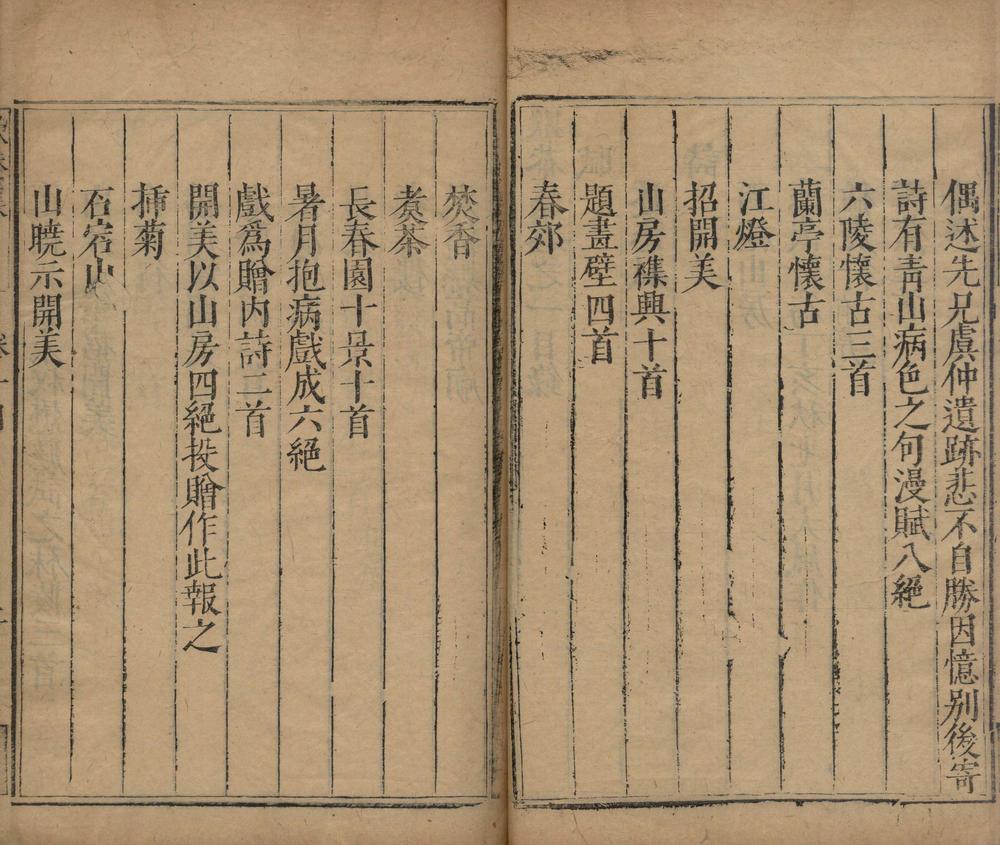 偶述先兄虞仲遺跡悲不自勝因憶别後寄
詩有靑山病色之句漫賦八絕
六陵懷古三首
蘭亭懷古
江燈
招開美
山房襍興十首
題畫壁四首
春郊
焚香
煑茶
長春園十景十首
暑月抱病戲成六絕
戲爲贈内詩二首
開美以山房四絕投贈作此報之
挿菊
石宕山
山曉示開美